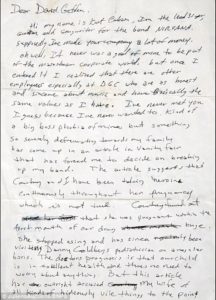 Dear David Geffen,
Hi my name is Kurt Cobain. Im the lead singer
guitar and songwriter for the band NIRVANA.
Supposedly Ive made your company a lot of money.
oh well. It never was a goal of mine to be part
of the mainstream corporate world, but once I
entered it I realized that there are other
employees especially at DGC who are as honest
and sincere about music and have basically the
same values as I have. I've never met you
I guess because I've never wanted to. kind of
a big boss phobia of mine. but something
so severely defamatory towards my family
has come up in an article in Vanity fair
that has forced me to decide on breaking
up my band. The article suggests that
Courtney and I have been doing heroine
continuously throughout her pregnancy
which is not true. Courtney found out
that she was pregnant within the
month of our drug binge.
She stopped using and has since been
Danny Goldberg pediatrician on a regular
basis. The doctors prognosis is that our child
is in excellent health and theres no need to
worry about anything. But this article
has outright accused my wife of
all kinds of hideously vile things to the point